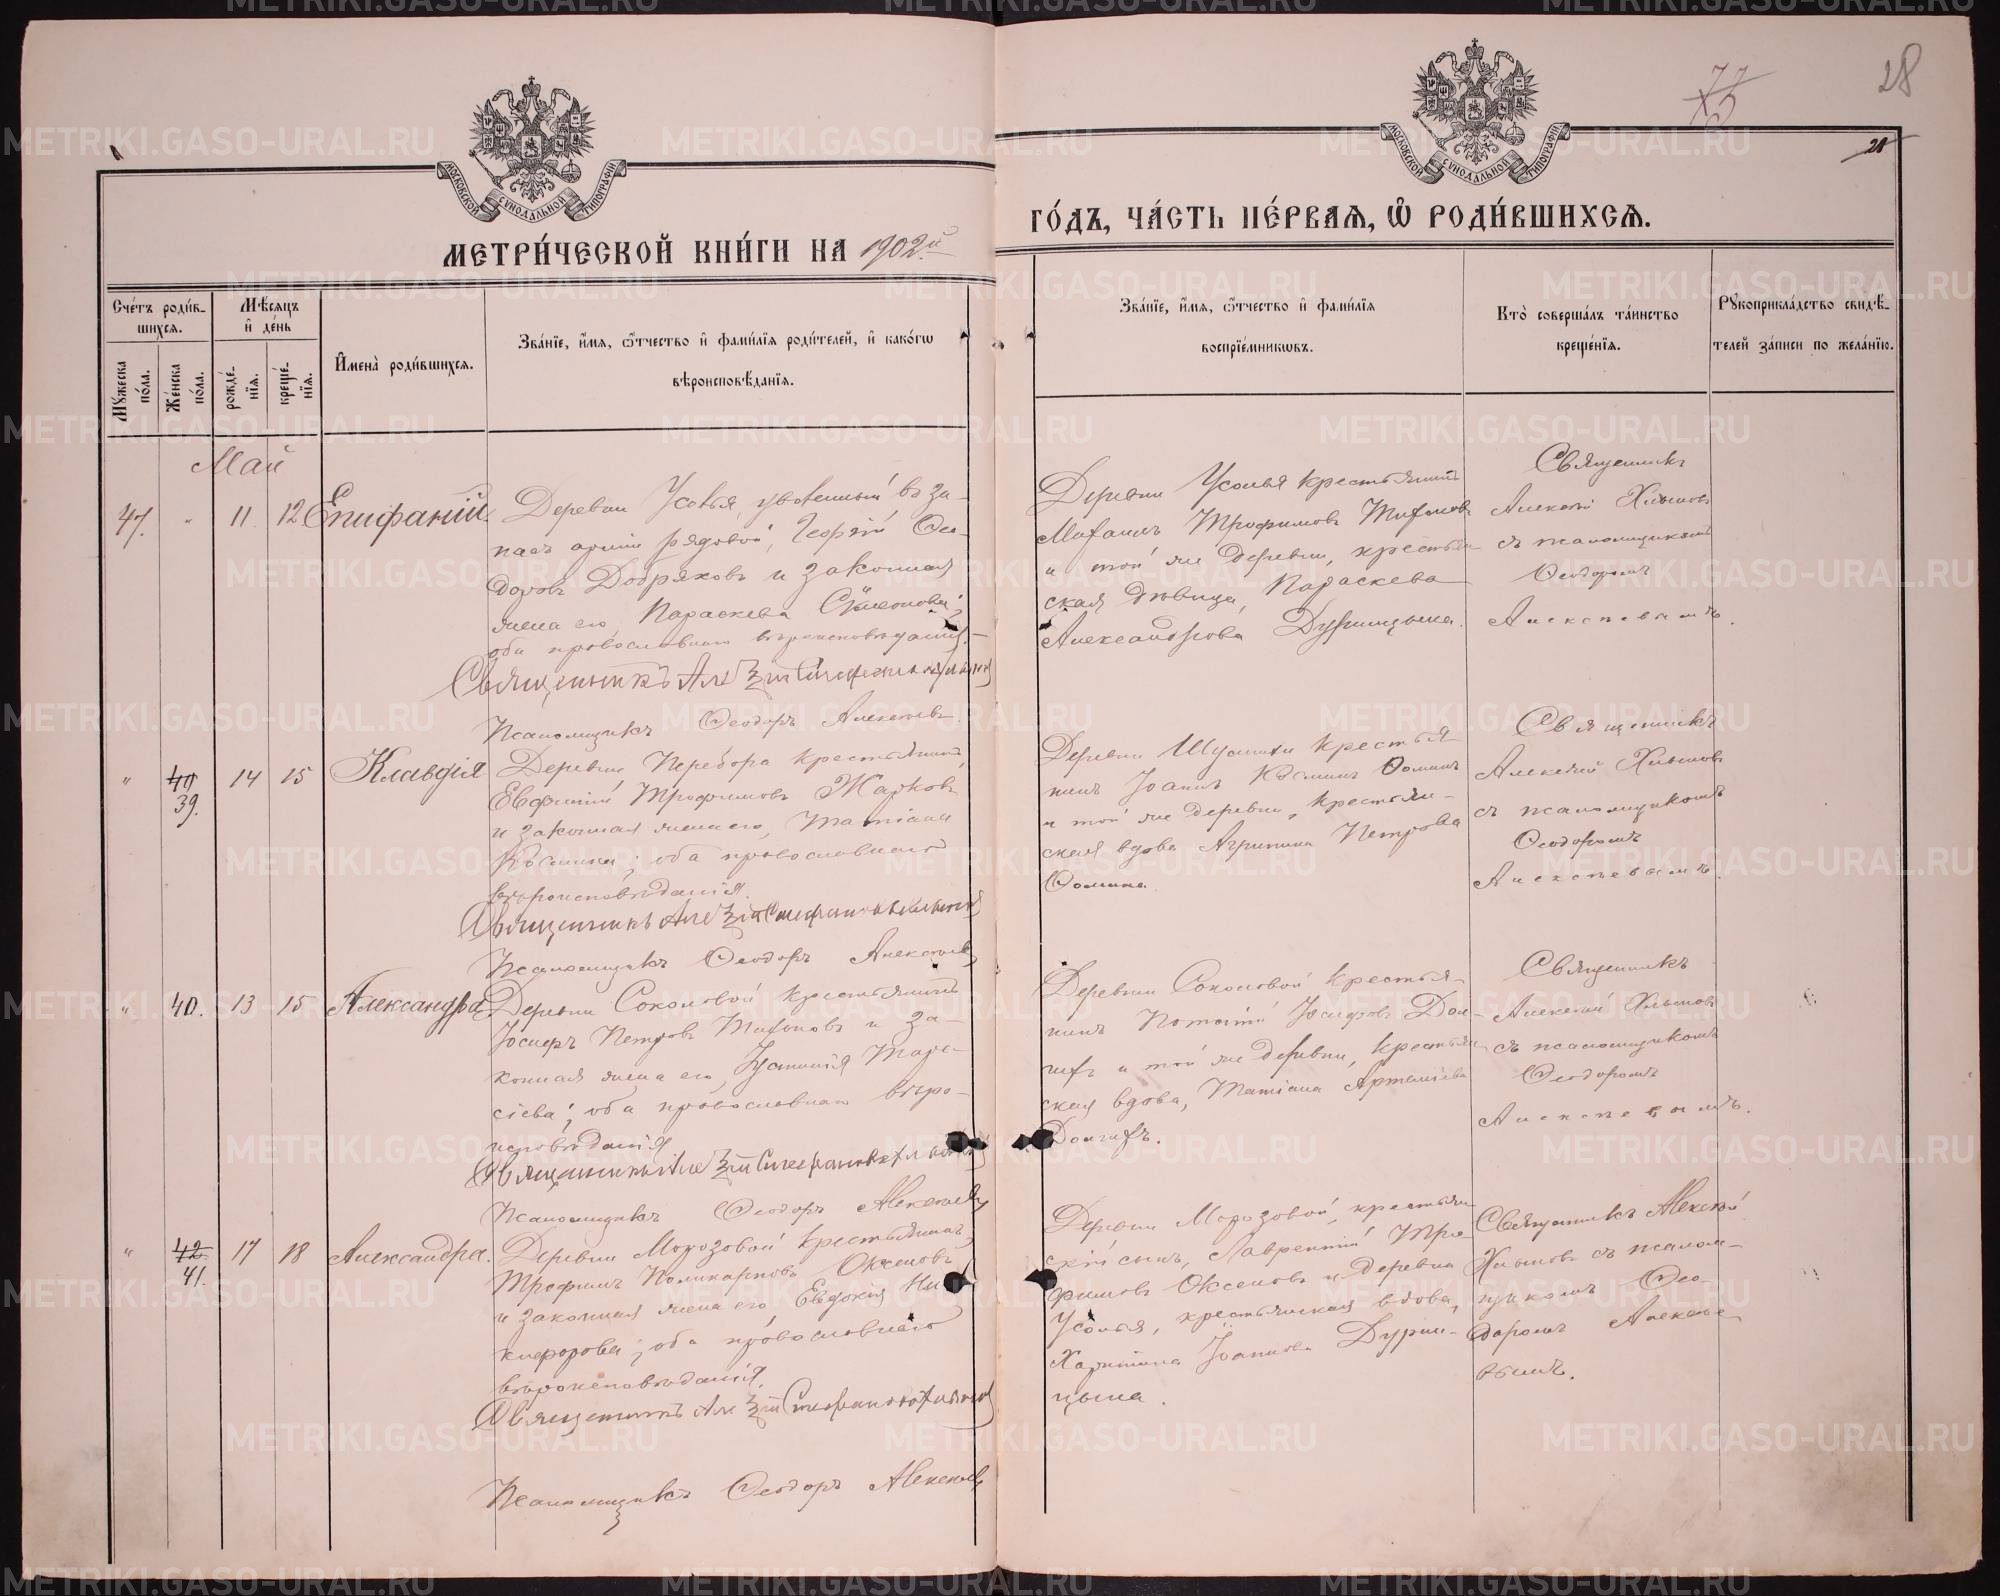 28
77
75
21
МОСКОВСКОЙ СѴНОДАЛЬНОЙ ТИПОГРАФІИ
МОСКОВСКОЙ СѴНОДАЛЬНОЙ ТИПОГРАФІИ
МЕТРИ́ЧЕСКОЙ КНИ́ГИ НА 1902й
ГО́ДЪ, ЧА́СТЬ ПЕ́РВАѦ, Ѽ РОДИ́ВШИХСѦ.
Сче́тъ роди́в-
шихсѧ.
Мꙋ́жеска по́ла.
Же́нска по́ла.
Мѣ́сѧцъ
и҆ де́нь
рожде́нїѧ.
креще́нїѧ.
И҆мена̀ роди́вшихсѧ.
Зва́нїе, и҆́мѧ, ѻ҆́тчество и҆ фами́лїѧ роди́телей, и҆ како́гѡ
вѣроисповѣ́данїѧ.
Зва́нїе, и҆́мѧ, ѻ҆́тчество и҆ фами́лїѧ
воспрїе́мникѡвъ.
Кто̀ соверша́лъ та́инство
креще́нїѧ.
Рꙋкоприкла́дство свидѣ́-
телей за́писи по жела́нїю.
Май
47. " 11. 12 Епифаній.
Деревни Усолья, уволенный въ за-
пасъ арміи рядовой, Георгій Ѳео-
доровъ Добряковъ и законная
жена его, Параскева Сѵмеонова;
оба православнаго вѣроисповѣданія.
Священникъ Алексій Стефановъ Хлыновъ
Псаломщикъ Ѳеодоръ Алексѣевъ.
Деревни Усолья крестьянинъ
Михаилъ Трофимовъ Тихоновъ
и той же деревни, крестьян-
ская дѣвица, Параскева
Александрова Дурницына.
Священникъ
Алексій Хлыновъ
съ псаломщикомъ
Ѳеодоромъ
Алексѣевымъ.
" 40 39. 14 15 Клавдія
Деревни Перебора крестьянинъ,
Евфимій Трофимовъ Жарковъ
и законная жена его, Татіана
Косьмина; оба православнаго
вѣроисповѣданія.
Священникъ Алексій Стефановъ Хлыновъ
Псаломщикъ Ѳеодоръ Алексѣевъ
нинъ Іоаннъ Косьминъ Ѳоминъ
и той же деревни, крестьян-
ская вдова Агрипина Петрова
Ѳомина.
Священникъ
Алексій Хлыновъ
съ псаломщикомъ
Ѳеодоромъ
Алексѣевымъ.
" 40. 13 15 Александра
Деревни Соколовой крестьянинъ
Іосифъ Петровъ Тихоновъ и за-
конная жена его, Іустинія Тара-
сіева; оба православнаго вѣро-
исповѣданія
Священникъ Алексій Стефановъ Хлыновъ
Псаломщикъ Ѳеодоръ Алексѣевъ
Деревни Соколовой крестья-
нинъ Потапій Іосифовъ Дол-
гихъ и той же деревни, крестьян
ская вдова, Татіана Артеміева
Долгихъ.
Священникъ
Алексій Хлыновъ
съ псаломщикомъ
Ѳеодоромъ
Алексѣевымъ.
" 42 41. 17 18 Александра.
Деревни Морозовой крестьянинъ,
Трофимъ Поликарповъ Оксеновъ
и законная жена его, Евдокія Ни-
кифорова; оба православнаго
вѣроисповѣданія.
Священникъ Алексій Стефановъ Хлыновъ
Псаломщикъ Ѳеодоръ Алексѣевъ
Деревни Морозовой, крестьян
скій сынъ, Лаврентій Тро-
фимовъ Оксеновъ и деревни
Усолья, крестьянская вдова,
Харитина Іоаннова Дурни-
цына.
Священникъ Алексій
Хлыновъ съ псалом-
щикомъ Ѳео-
доромъ Алексѣе
вымъ.
METRIKI.GASO-URAL.RU